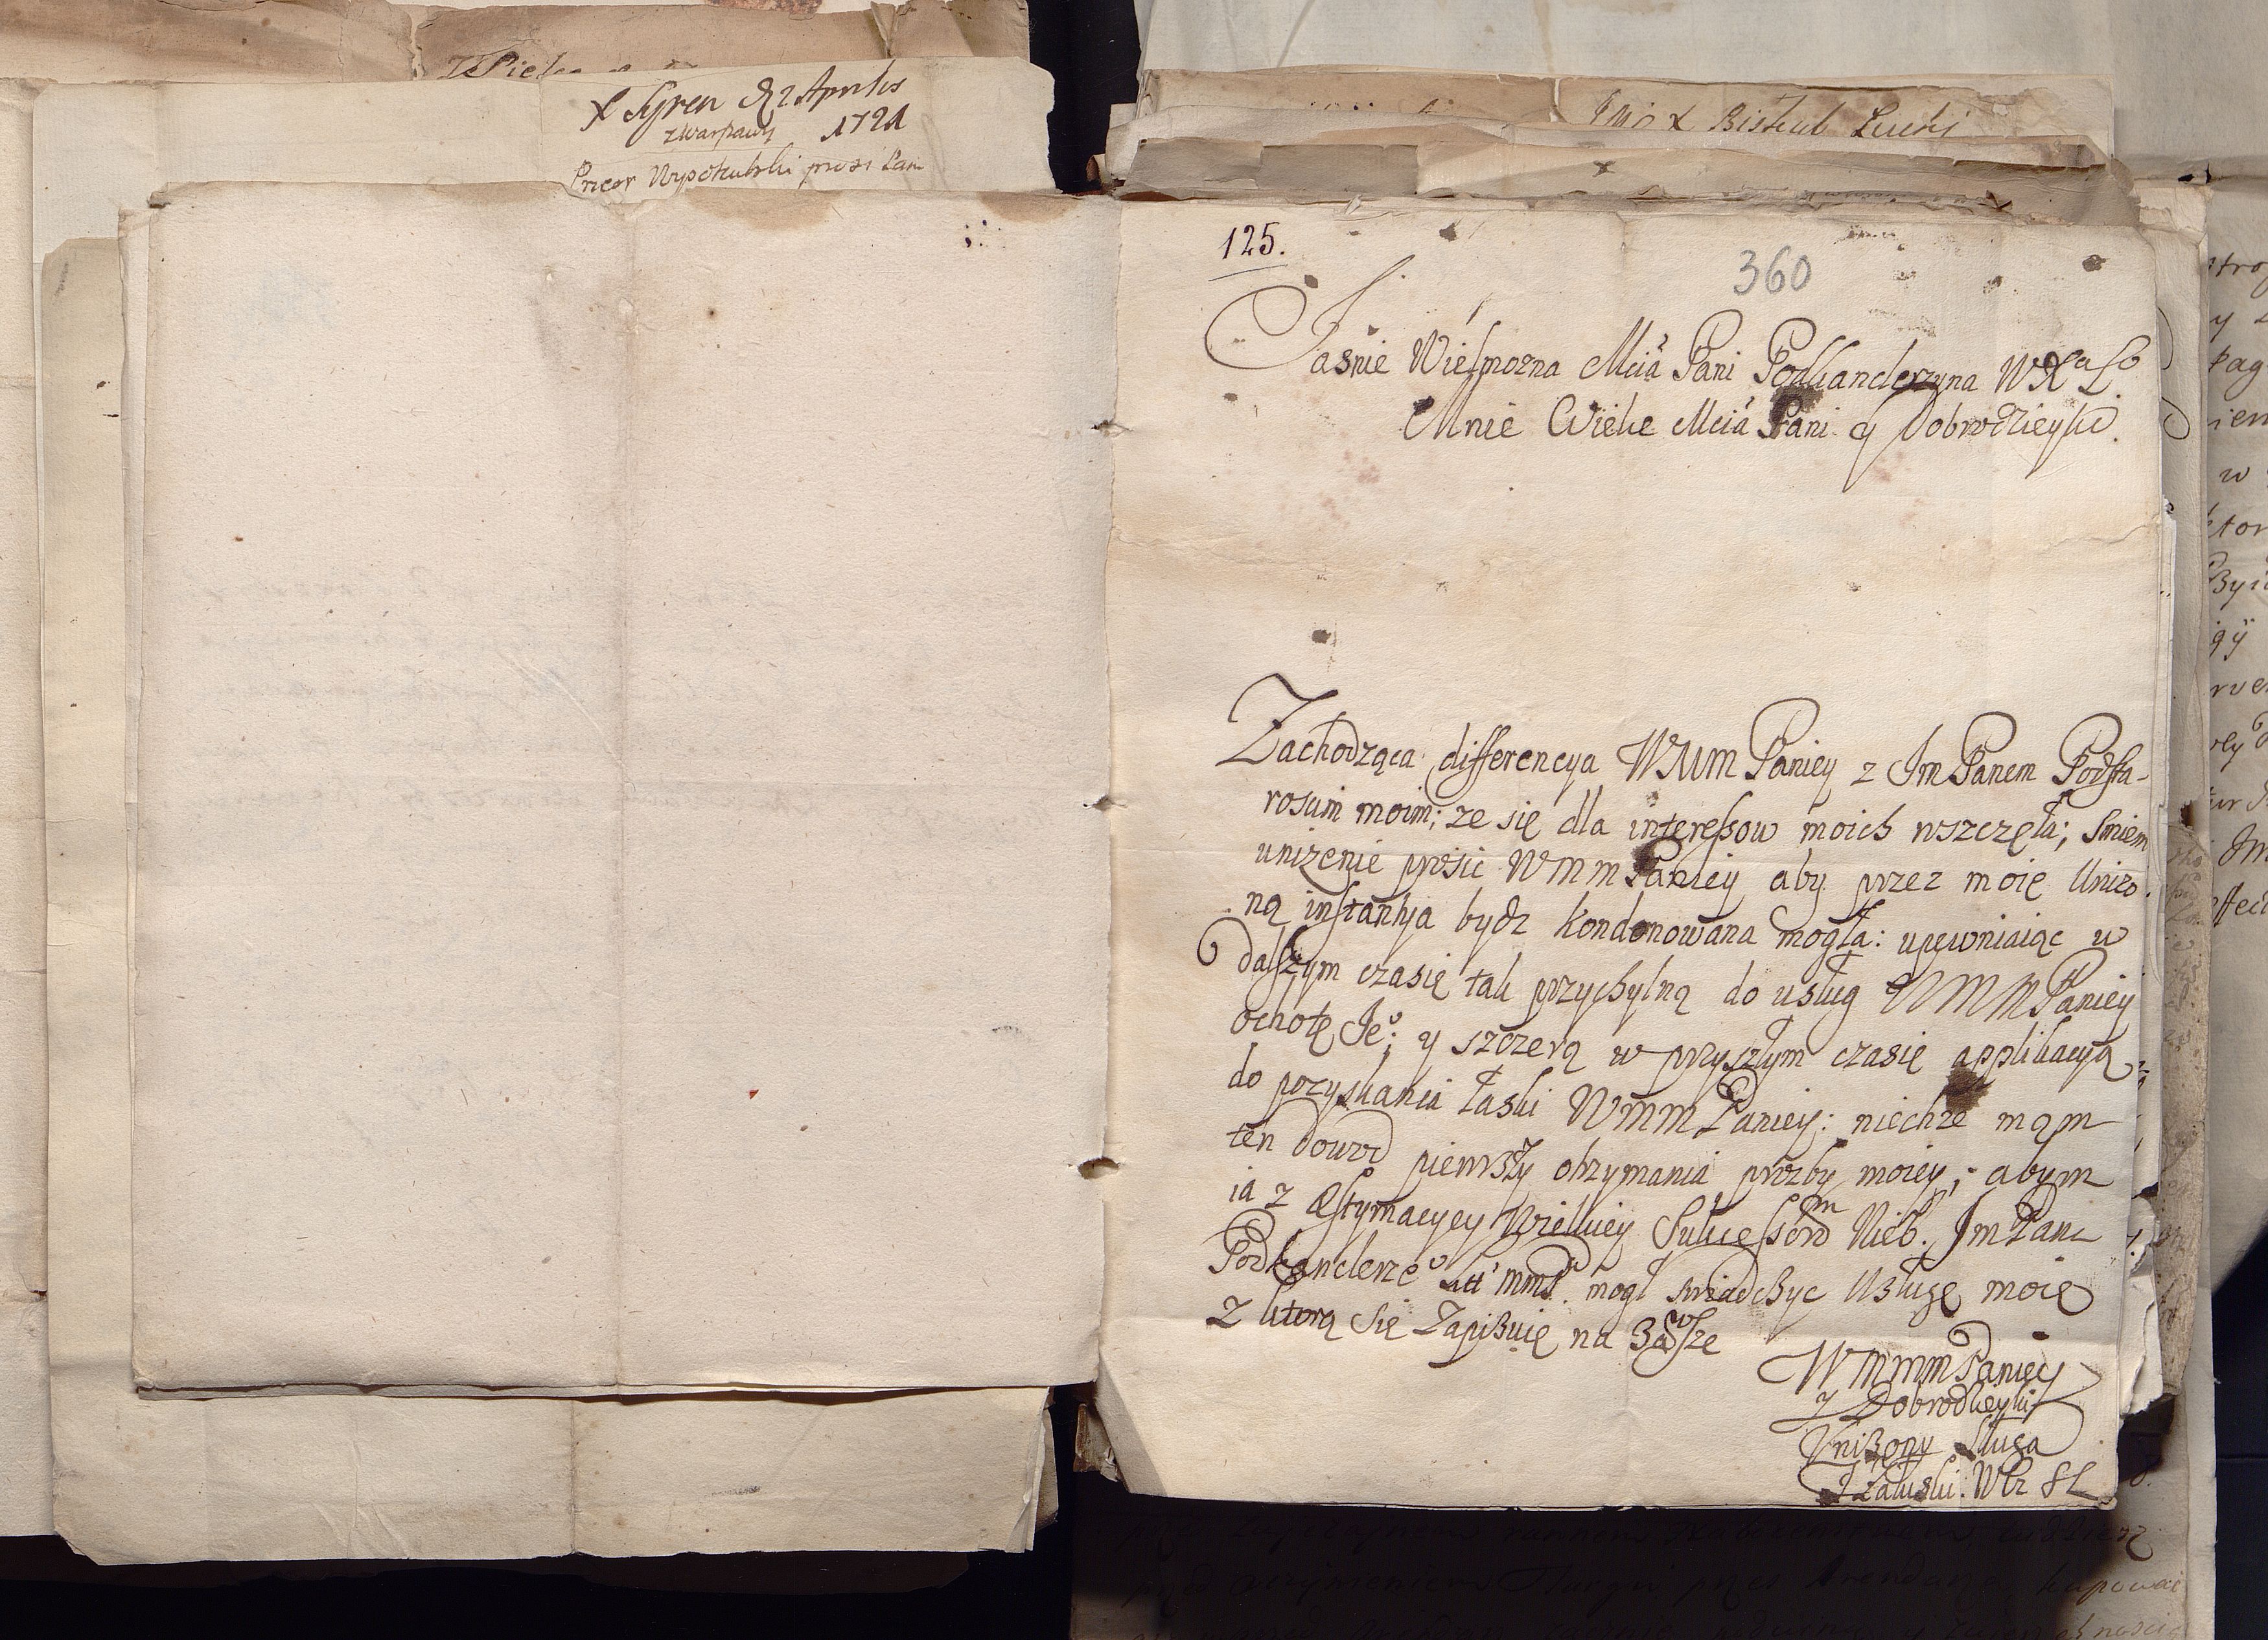 X Syren d 2 Aprilis
zWarszawy 1721
Przeor Wysokulski prosi Pani
Jmć X Biskub Lucki
125.
360
Jasnie Wielmozna Mcia Pani Podkanclerzyna WXaLo
Mnie Wielce Mcia Pani y Dobrodzieyko.
Zachodząca differencya WMM Paniey z Im Panem Podsta-
rosim moim; ze się dla interessow moich wszczęła; smiem
unizenie prosic WMM Paniey aby przez moię Unizo.
ną instantya bydz kondonowana mogła: upewniaiąc w
dalszym czasię tak przychylną do usług WMM Paniey
ochotę Jeo; y szczerą w przyszłym czasię applikacyą
do pozyskania łaski WMM Paniey: niechze mąm
ten dowod pierwszy otrzymania prozby moiey; abym
ia z Estymacyey Wielkiey Sukcessorom Nieb. Im Pana
Podkanclerzeo Litt MMP. mogl swiadczyc Usługę moię
z ktorą się Zapisuię na Zawsze
WMMM Paniey
y Dobrodzieyki
Unizony Sługa
Załuski. WR